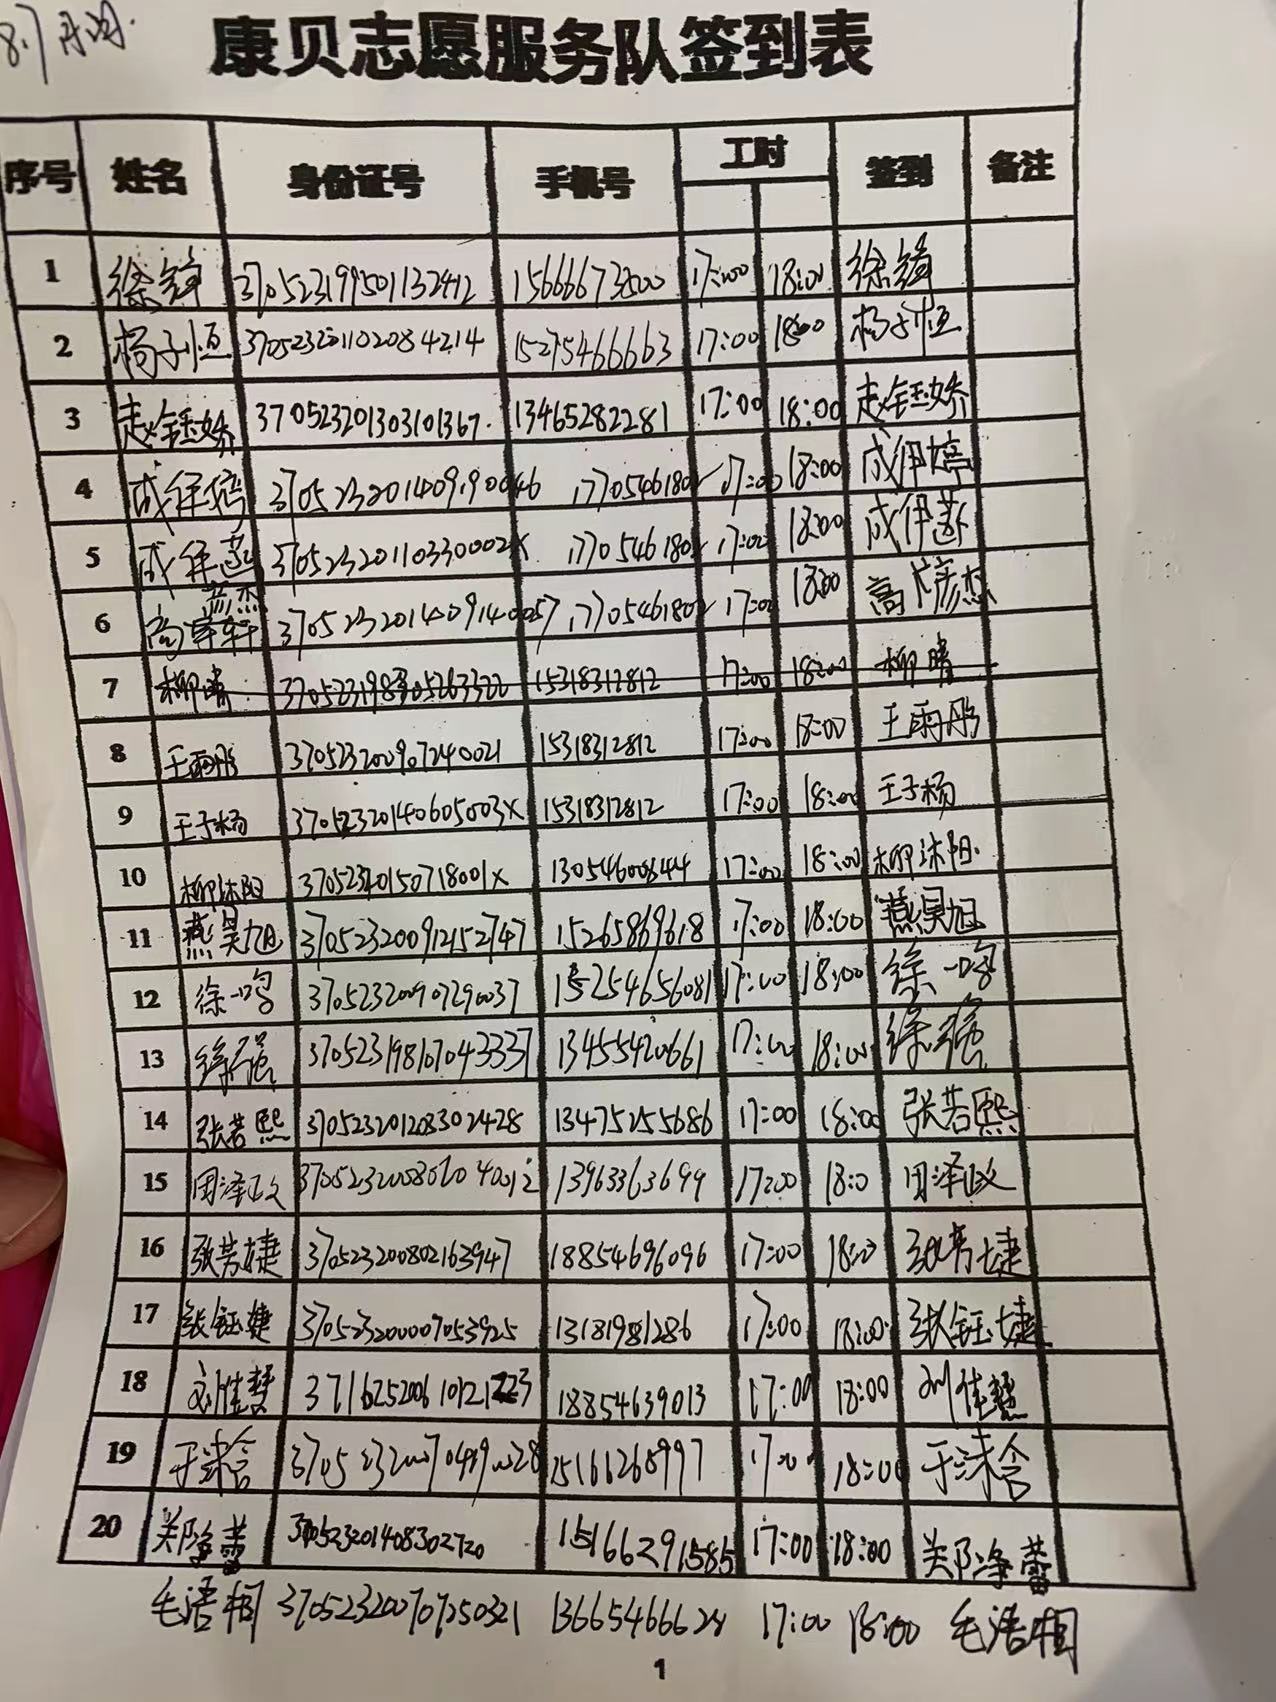 8.7
康贝志愿服务队签到表
序号 姓名 身份证号 手机号 工时 签到 备注
1 徐锋 370523199501132412 15666673800 17:00 18:00 徐锋
2 杨子恒 370523201102084214 15275466663 17:00 18:00 杨子恒
3 赵钰娇 370523201303101367 13465282281 17:00 18:00 赵钰娇
4 成伊婷 370523201409190046 1770546180 17:00 18:00 成伊婷
5 成伊 37052320110330002X 1770546180 17:00 18:00 成伊
6 高 370523201409140057 1770546180 17:00 18:00 高彦杰
7 柳晴 15318312812 17:00 18:00 柳晴
8 王雨彤 370523200907240021 15318312812 17:00 18:00 王雨彤
9 王子杨 37052320140605003X 15318312812 17:00 18:00 王子杨
10 柳沐阳 37052320150718001X 17:00 18:00 柳沐阳
11 燕昊旭 370523200912152747 15265869618 17:00 18:00 燕昊旭
12 徐一鸣 370523200907290037 15254656081 17:00 18:00 徐一鸣
13 徐强 370523198107043337 13455420661 17:00 18:00 徐强
14 张若熙 370523201208302428 13475255686 17:00 18:00 张若熙
15 周泽政 13963363699 17:00 18:0 周泽政
16 张芳婕 370523200802163947 18854696096 17:00 18:00 张芳婕
17 张钰婕 370523200007053925 13181981286 17:00 18:00 张钰婕
18 刘佳慧 18854639013 17:00 18:00 刘佳慧
19 于沫含 15166268997 17:00 18:00 于沫含
20 370523201408302720 15166291585 17:00 18:00
毛语桐 370523200707250321 13665466628 17:00 18:00 毛语桐
1